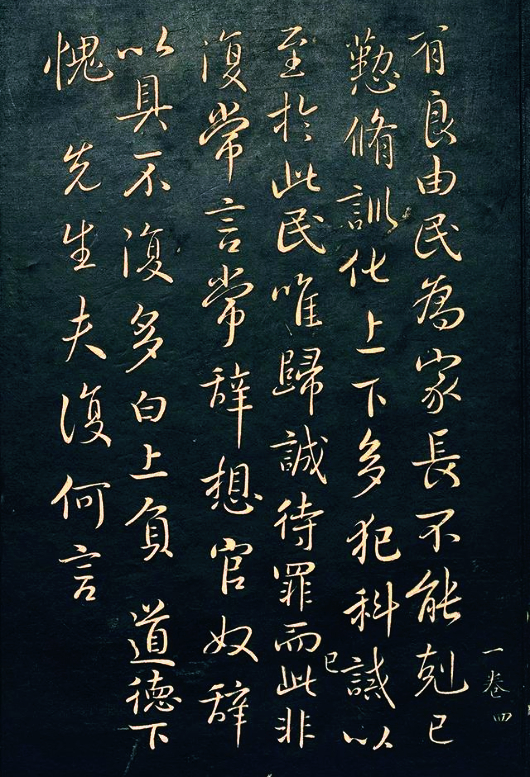 有良由民為家長不能剋己
懃脩訓化上下多犯科誡以
至於此民唯歸誠待罪而已此非
復常言常辞想官奴辞
以具不復多白上負 道德下
愧 先生夫復何言
一卷四